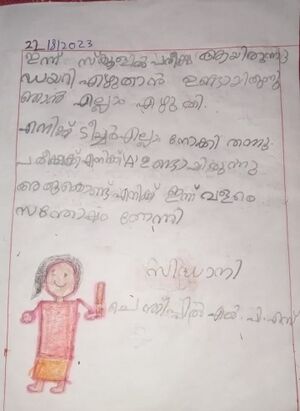 22/8/2023
ഇന്ന് സ്കൂളിൽ പരീക്ഷ ആയിരുന്നു
ഡയറി എഴുതാൻ ഉണ്ടായിരുന്നു
ഞാൻ എല്ലാം എഴുതി.
എനിക്ക് ടീച്ചർ എല്ലാം നോക്കി തന്നു.
പരീക്ഷക്ക് എനിക്ക് A ഉണ്ടായിരുന്നു
അതുകൊണ്ട് എനിക്ക് ഇന്ന് വളരെ
സന്തോഷം തോന്നി
എൽ. പി. എസ്